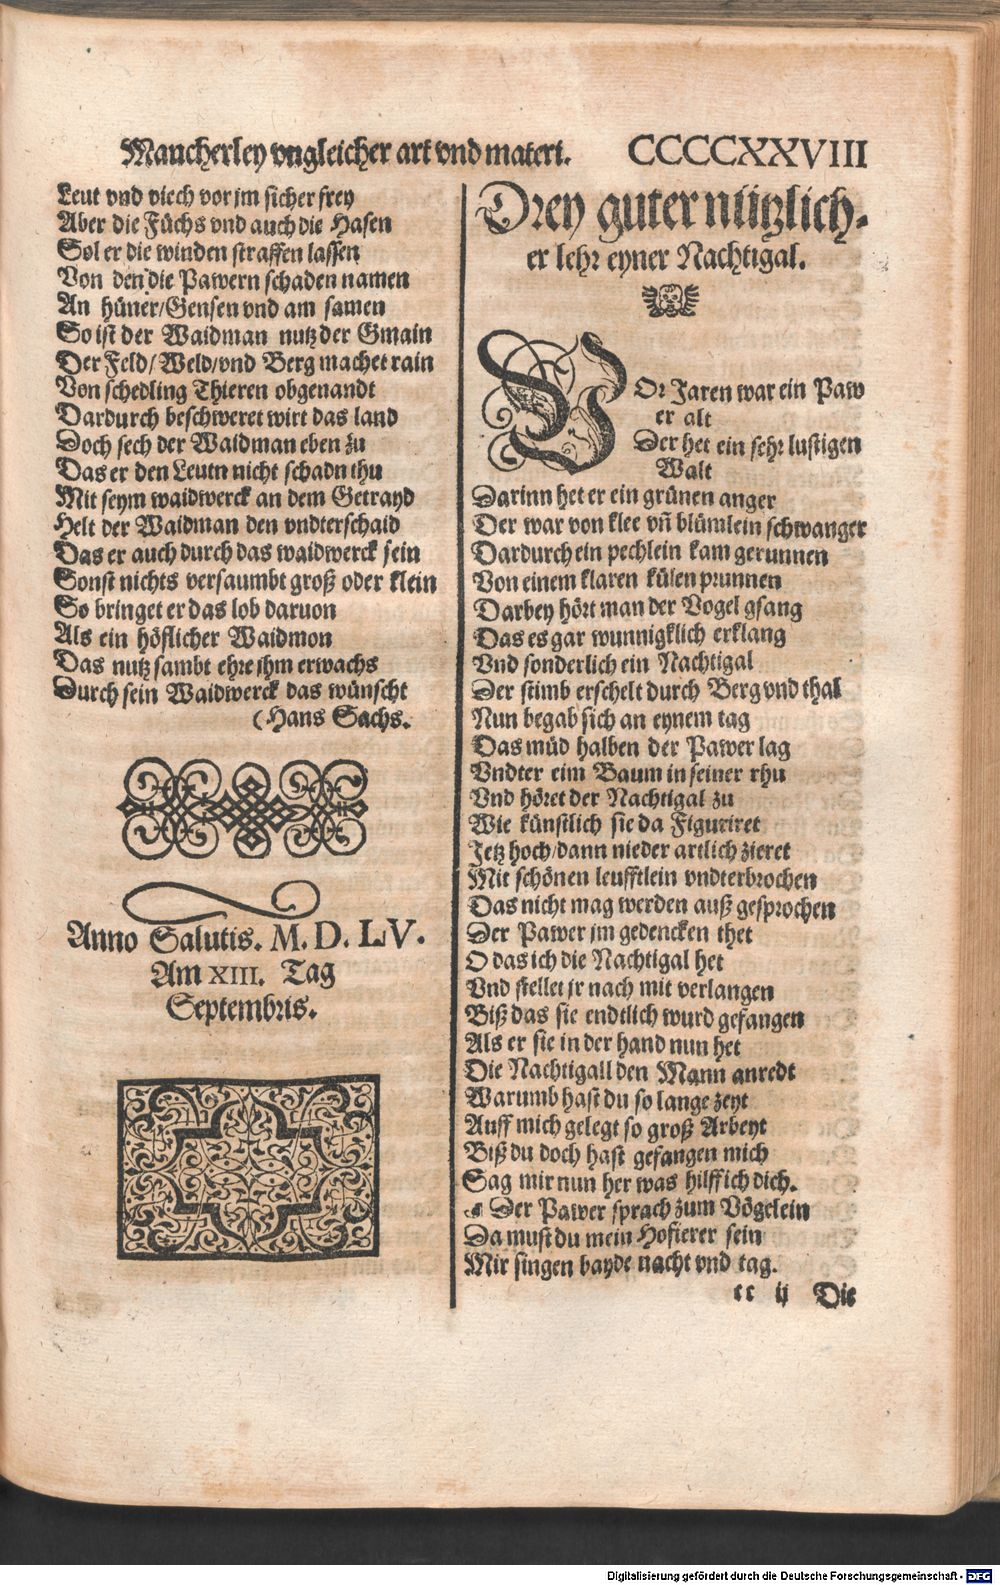 Mancherley vngleicher art vnd materi. CCCCXXVIII
Leut vnd viech vor jm sicher frey
Aber die Füchs vnd auch die Hasen
Sol er die winden straffen lassen
Von den die Pawern schaden namen
An hüner/Gensen vnd am samen
So ist der Waidman nutz der Gmain
Der Feld/ Weld/vnd Berg machet rain
Von schedling Thieren obgenandt
Dardurch beschweret wirt das land
Doch sech der Waidman eben zu
Das er den Leutn nicht schadn thu
Mit seym waidwerck an dem Getrayd
Helt der Waidman den vndterschaid
Das er auch durch das waidwerck sein
Sonst nichts versaumbt groß oder klein
So bringet er das lob daruon
Als ein höflicher Waidmon
Das nutz sambt ehre ihm erwachs
Durch sein Waidwerck das wünscht
(Hans Sachs.
Anno Salutis. M. D. LV.
Am XIII. Tag
Septembris.
Drey guter nützlich-
er lehr eyner Nachtigal.
VOr Jaren war ein Paw
er alt
Der het ein sehr lustigen
Walt
Darinn het er ein grünen anger
Der war von klee vñ blümlein schwanger
Dardurch ein pechlein kam gerunnen
Von einem klaren külen prunnen
Darbey hört man der Vogel gsang
Das es gar wunnigklich erklang
Vnd sonderlich ein Nachtigal
Der stimb erschelt durch Berg vnd thal
Nun begab sich an eynem tag
Das müd halben der Pawer lag
Vndter eim Baum in seiner rhu
Vnd höret der Nachtigal zu
Wie künstlich sie da Figuriret
Jetz hoch/dann nieder artlich zieret
Mit schönen leufftlein vndterbrochen
Das nicht mag werden auß gesprochen
Der Pawer jm gedencken thet
O das ich die Nachtigal het
Vnd stellet jr nach mit verlangen
Biß das sie endtlich wurd gefangen
Als er sie in der hand nun het
Die Nachtigall den Mann anredt
Warumb hast du so lange zeyt
Auff mich gelegt so groß Arbeyt
Biß du doch hast gefangen mich
Sag mir nun her was hilff ich dich.
☙ Der Pawer sprach zum Vögelein
Da must du mein Hofierer sein
Mir singen bayde nacht vnd tag.
cc ij Die
Digitalisierung gefördert durch die Deutsche Forschungsgemeinschaft - DFG